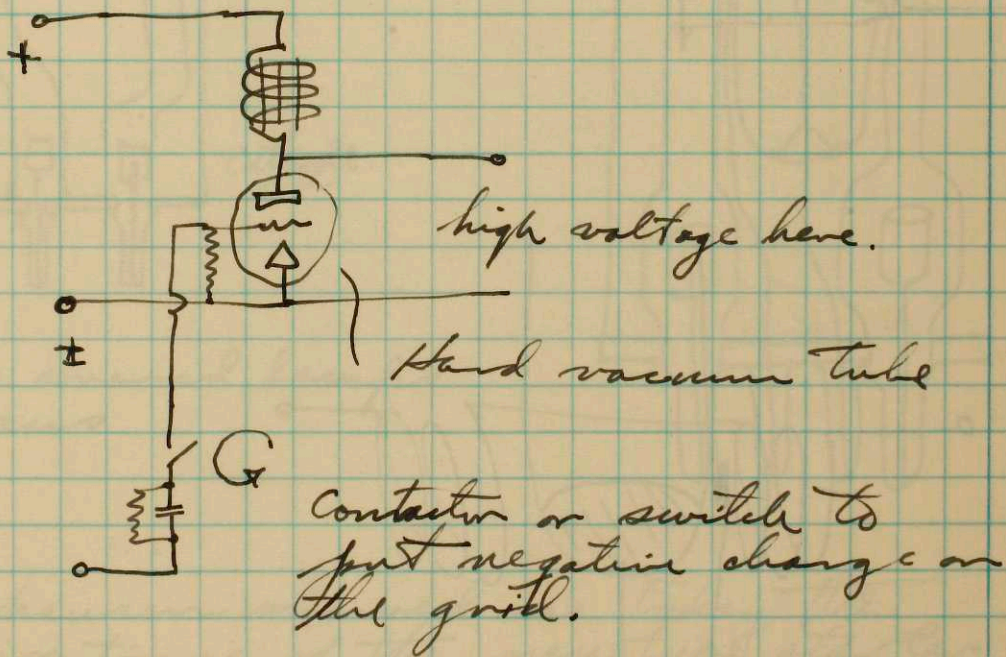 +
high voltage here.
±
Hard vacuum tube
Contactor or switch to
put negative charge on
the grid.